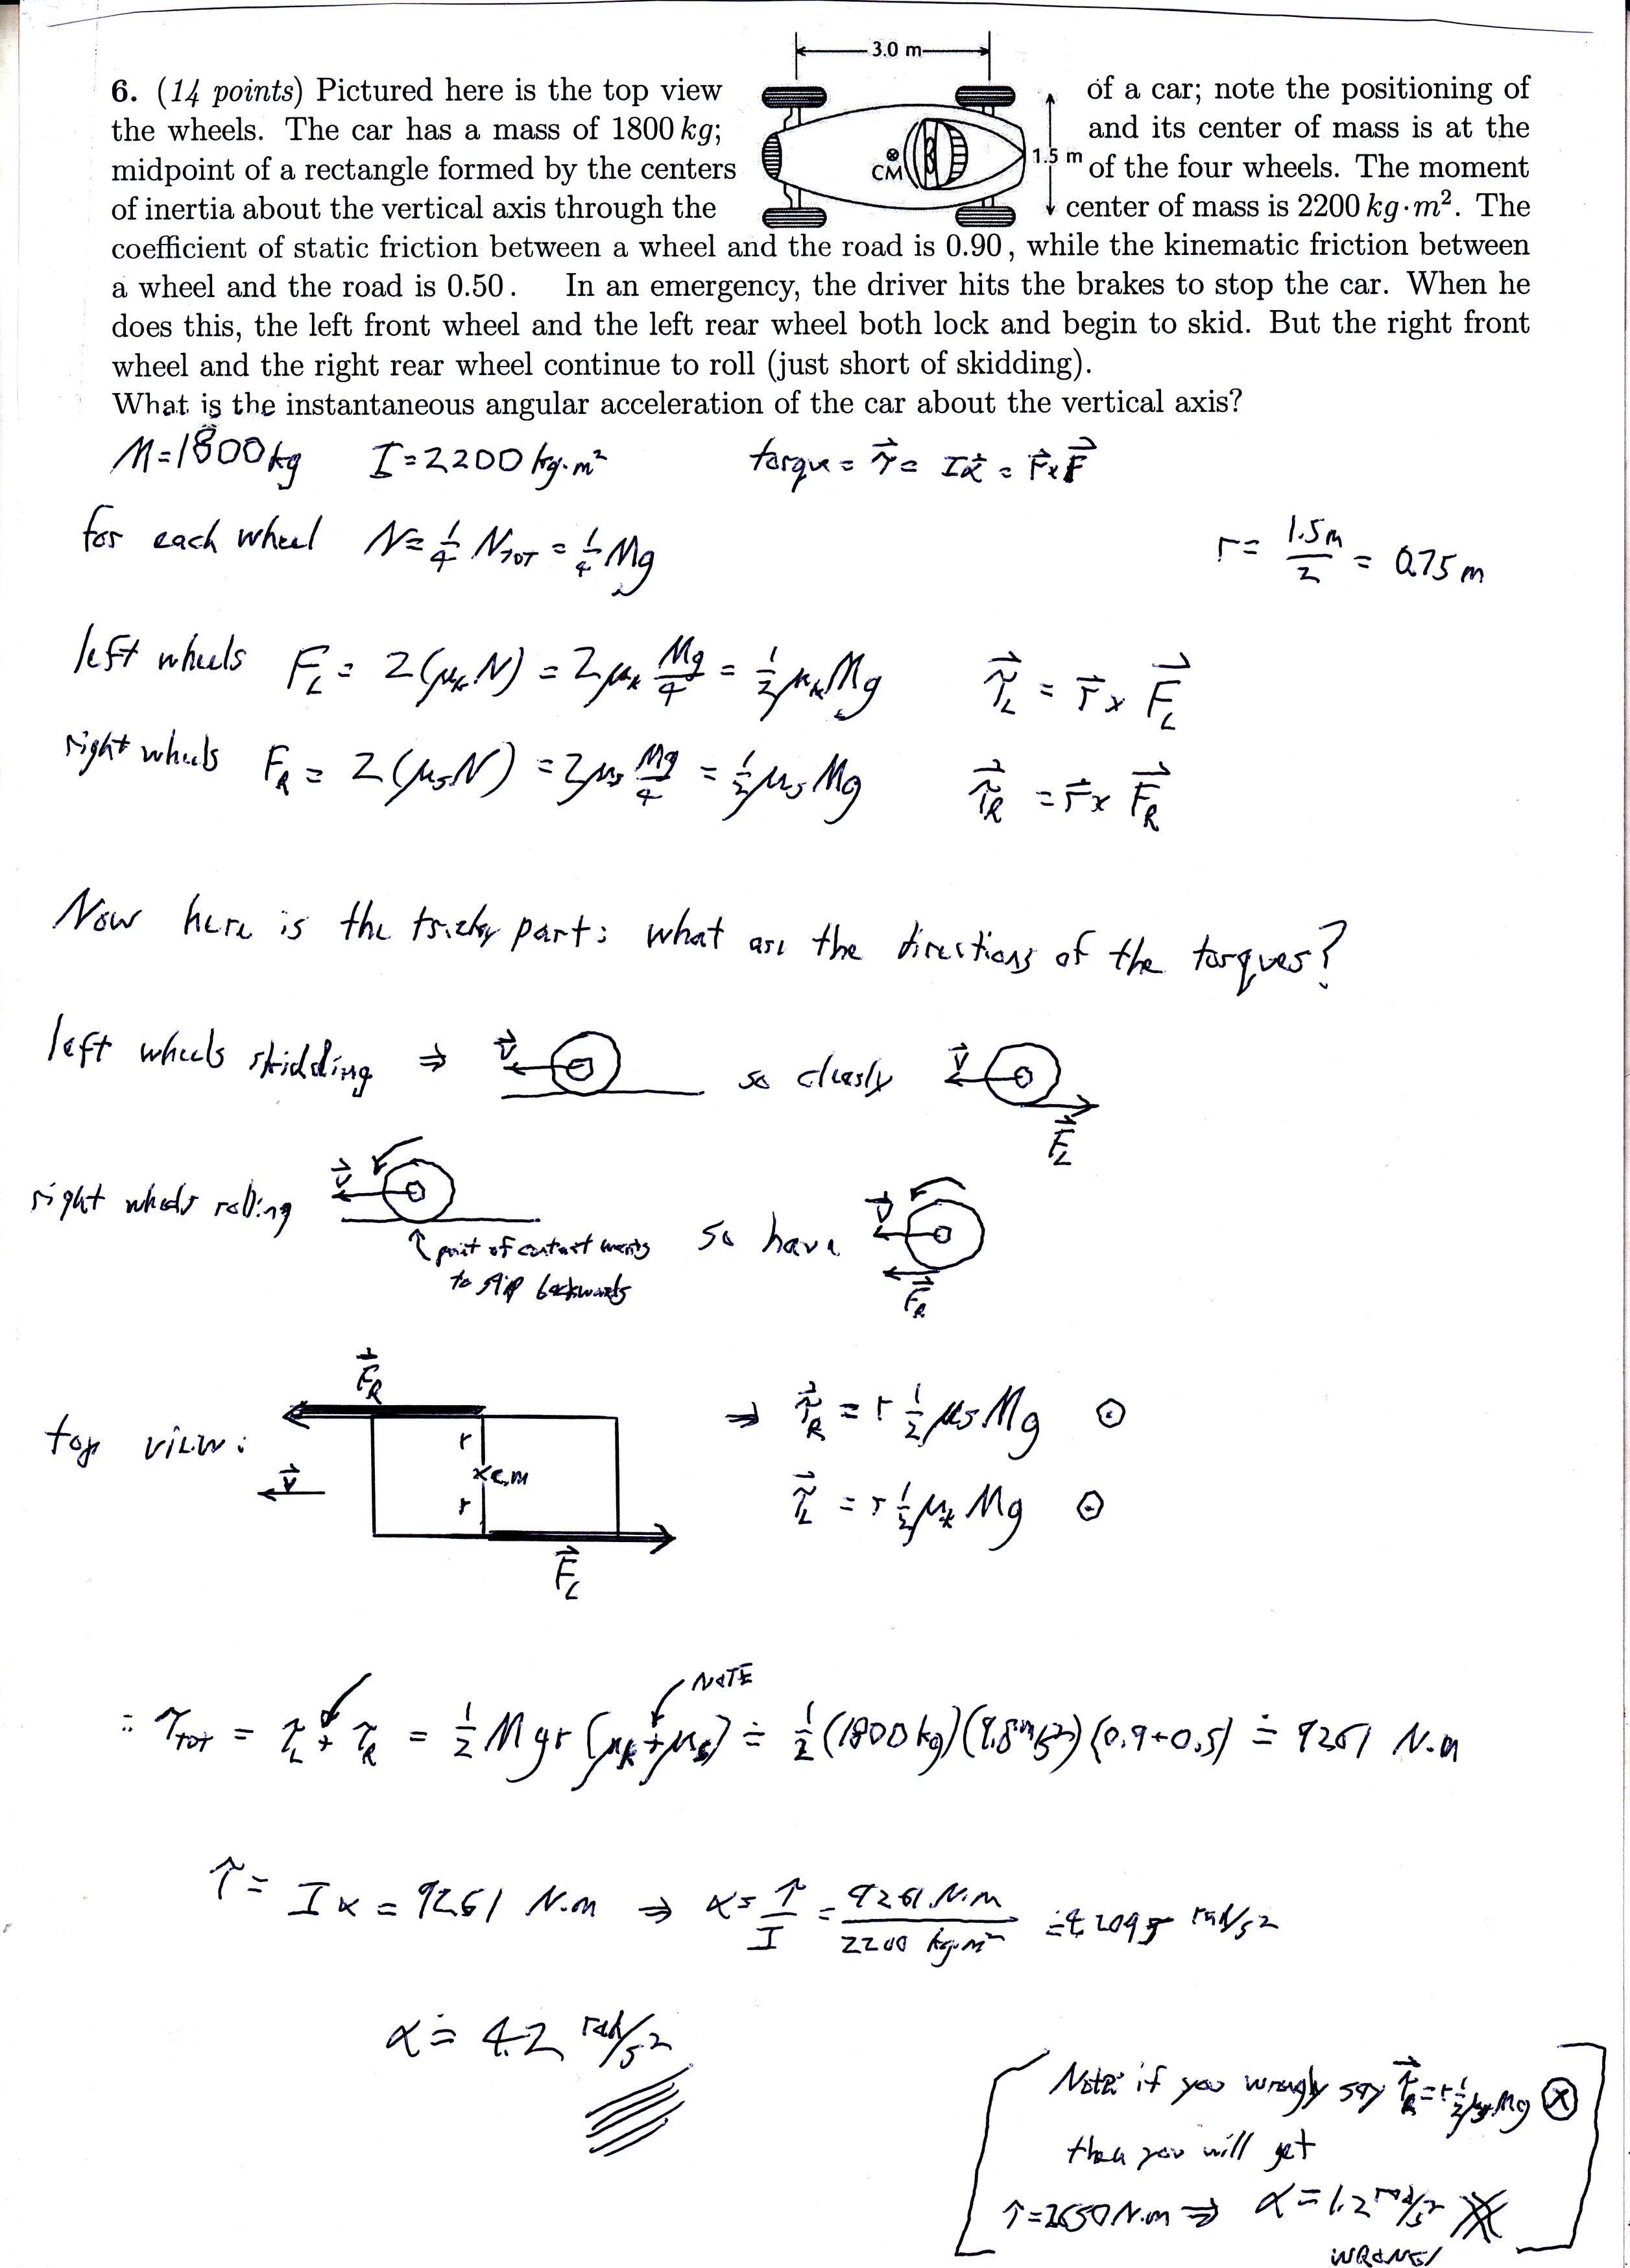 3.0 m
6. (14 points) Pictured here is the top view of a car; note the positioning of
the wheels. The car has a mass of 1800 kg; and its center of mass is at the
1.5 m
CM
midpoint of a rectangle formed by the centers of the four wheels. The moment
of inertia about the vertical axis through the center of mass is 2200 kg·m². The
coefficient of static friction between a wheel and the road is 0.90, while the kinematic friction between
a wheel and the road is 0.50. In an emergency, the driver hits the brakes to stop the car. When he
does this, the left front wheel and the left rear wheel both lock and begin to skid. But the right front
wheel and the right rear wheel continue to roll (just short of skidding).
What is the instantaneous angular acceleration of the car about the vertical axis?
M=1800kg I=2200 kg·m² torque = τ⃗ = Iα⃗ = r⃗×F⃗
for each wheel N=¼ N_TOT = ¼ Mg r= 1.5m/2 = 0.75 m
left wheels F_L = 2(μ_k N) = 2μ_k Mg/4 = ½ μ_k Mg τ⃗_L = r⃗ × F⃗_L
right wheels F_R = 2(μ_s N) = 2μ_s Mg/4 = ½ μ_s Mg τ⃗_R = r⃗ × F⃗_R
Now here is the tricky part: what are the directions of the torques?
left wheels skidding ⇒ v⃗ so clearly v⃗ F⃗_L
right wheels rolling v⃗ so have v⃗ F⃗_R
↑ point of contact wants
to slip backwards
top view: v⃗ F⃗_R r x c.m r F⃗_L
⇒ τ⃗_R = r ½ μ_s Mg ⊙
τ⃗_L = r ½ μ_k Mg ⊙
NOTE
∴ τ_tot = τ_L + τ_R = ½ Mgr (μ_k + μ_s) ≐ ½ (1800 kg)(9.8 m/s²)(0.9+0.5) ≐ 9261 N·m
τ = Iα = 9261 N·m ⇒ α = τ/I = 9261 N·m / 2200 kg·m² ≐ 4.2095 rad/s²
α ≐ 4.2 rad/s²
Note: if you wrongly say τ⃗_R = r ½ μ_s Mg ⊗
then you will get
τ=2650 N·m ⇒ α = 1.2 rad/s²
WRONG!